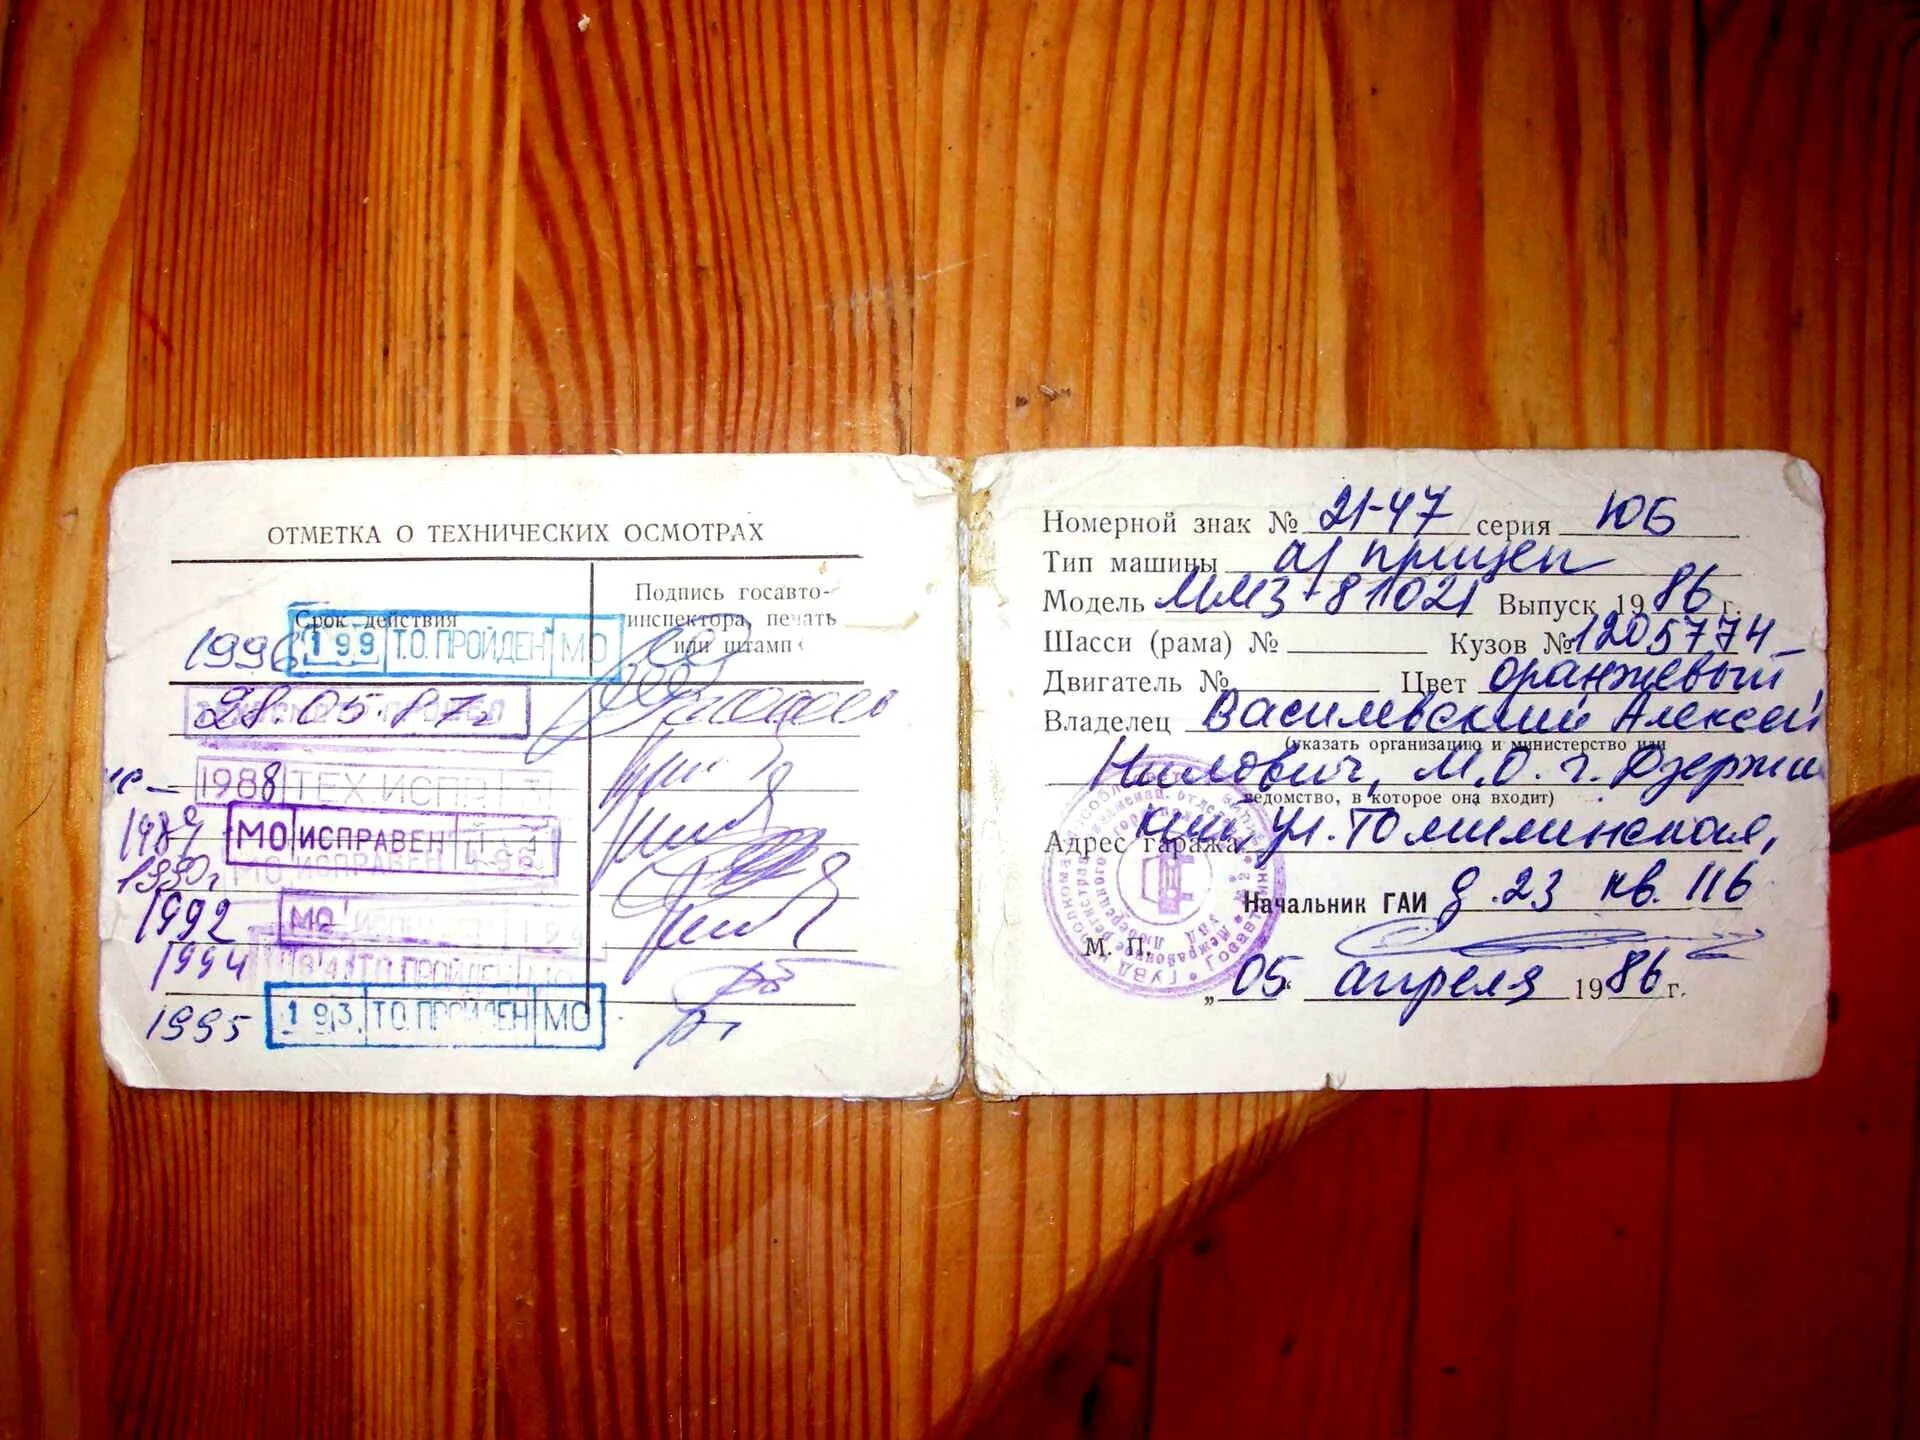 ОТМЕТКА О ТЕХНИЧЕСКИХ ОСМОТРАХ
Срок действия
Подпись госавто-
инспектора, печать
или штамп
1996 199 Т.О. ПРОЙДЕН МО
28.05.87г
1988 ТЕХ ИСПР
1989 МО ИСПРАВЕН
МО ИСПРАВЕН
1990г
1992 МО
1994 Т.О. ПРОЙДЕН
1995 193 Т.О. ПРОЙДЕН МО
Номерной знак № 21-47 серия ЮБ
Тип машины а/прицеп
Модель ММЗ-81021 Выпуск 1986 г.
Шасси (рама) № Кузов № 1205774
Двигатель № Цвет оранжевый
Владелец Василевский Алексей
(указать организацию и министерство или
Нилович, М.О. г. Дзержин
ведомство, в которое она входит)
Адрес гаража ул. Томилинская,
Начальник ГАИ д. 23 кв. 116
М. П.
„05“ апреля 1986 г.